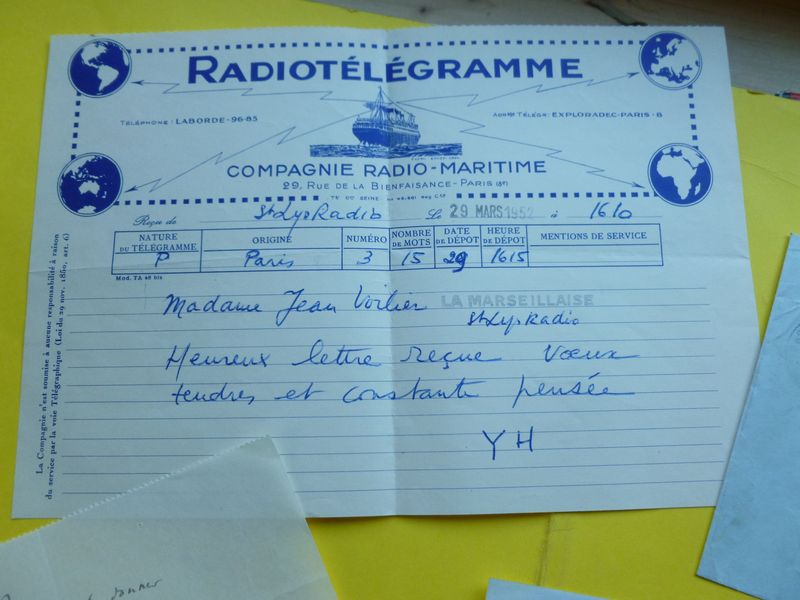 RADIOTÉLÉGRAMME
TÉLÉPHONE : LABORDE-96-85
ADRSSE TÉLÉGR: EXPLORADEC-PARIS-8
COMPAGNIE RADIO-MARITIME
29, RUE DE LA BIENFAISANCE-PARIS (8E)
Reçu de St Lys Radio Le 29 MARS 1952 à 1610
NATURE DU TÉLÉGRAMME ORIGINE NUMÉRO NOMBRE DE MOTS DATE DE DÉPOT HEURE DE DÉPOT MENTIONS DE SERVICE
P Paris 3 15 29 1615
Mod. TA 48 bis
Madame Jean Voilier LA MARSEILLAISE
St Lys Radio
Heureux lettre reçue Vœux
tendres et constante pensée
YH
La Compagnie n'est soumise à aucune responsabilité à raison
du service par la voie Télégraphique (Loi du 29 nov. 1850, art. 6)
donner